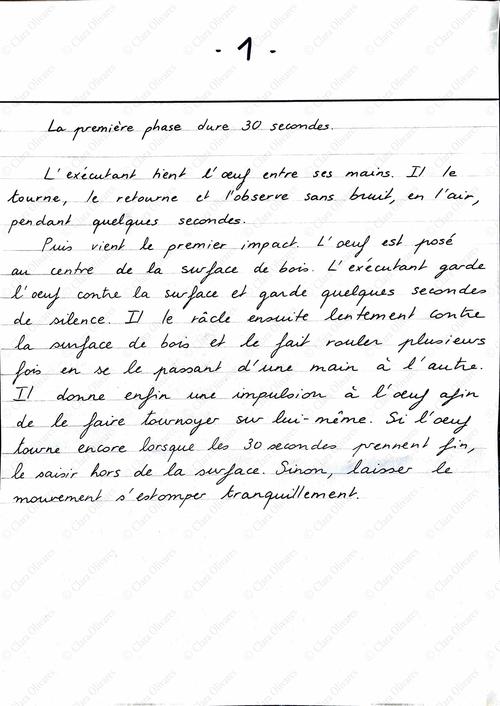 - 1 -
La première phase dure 30 secondes.
L'exécutant tient l'œuf entre ses mains. Il le
tourne, le retourne et l'observe sans bruit, en l'air,
pendant quelques secondes.
Puis vient le premier impact. L'oeuf est posé
au centre de la surface de bois. L'exécutant garde
l'oeuf contre la surface et garde quelques secondes
de silence. Il le râcle ensuite lentement contre
la surface de bois et le fait rouler plusieurs
fois en se le passant d'une main à l'autre.
Il donne enfin une impulsion à l'œuf afin
de le faire tournoyer sur lui-même. Si l'œuf
tourne encore lorsque les 30 secondes prennent fin,
le saisir hors de la surface. Sinon, laisser le
mouvement s'estomper tranquillement.
© Clara Olivares